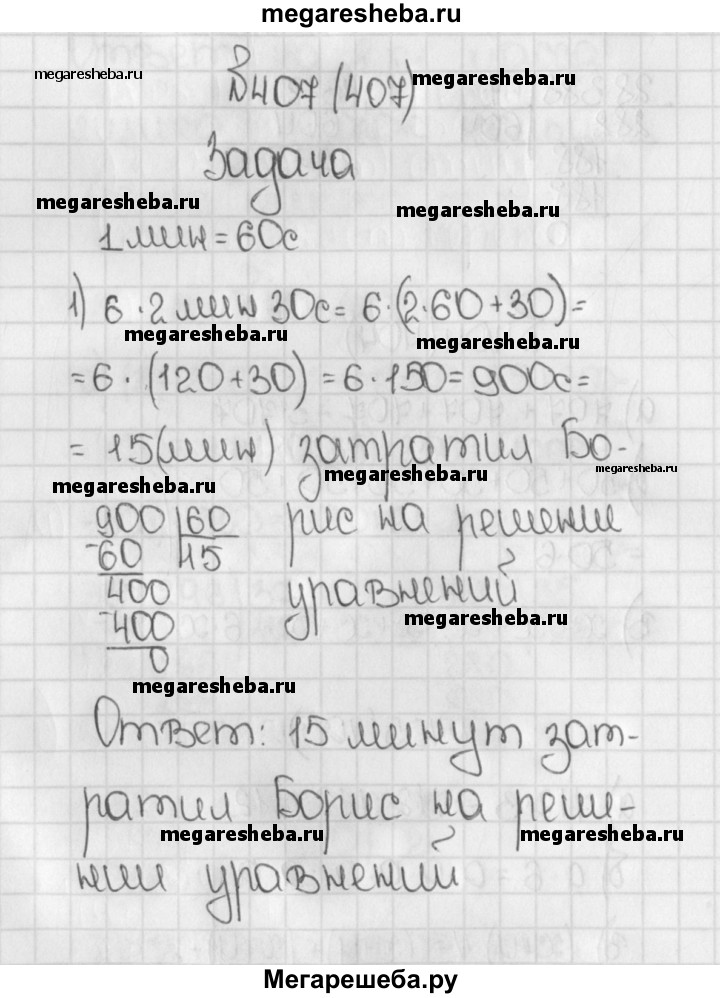 megaresheba.ru
megaresheba.ru
№407 (407) megaresheba.ru
Задача
megaresheba.ru megaresheba.ru
1 мин = 60с
1) 6 · 2 мин 30с = 6 · (2·60+30) =
megaresheba.ru megaresheba.ru
= 6 · (120+30) = 6 · 150 = 900с =
= 15(мин) затратил Бо-
megaresheba.ru megaresheba.ru megaresheba.ru
900 | 60 рис на решении
-60 15 уравнений
400
-400 megaresheba.ru
0
megaresheba.ru
Ответ: 15 минут зат-
ратил Борис на реше-
megaresheba.ru megaresheba.ru
нии уравнений
Мегарешеба.ру